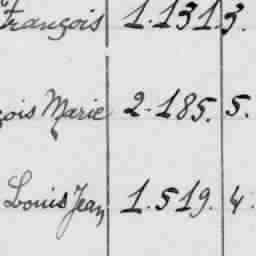 François 1.131. 3.
çois Marie 2.185. 5.
Louis Jean 1.519. 4.